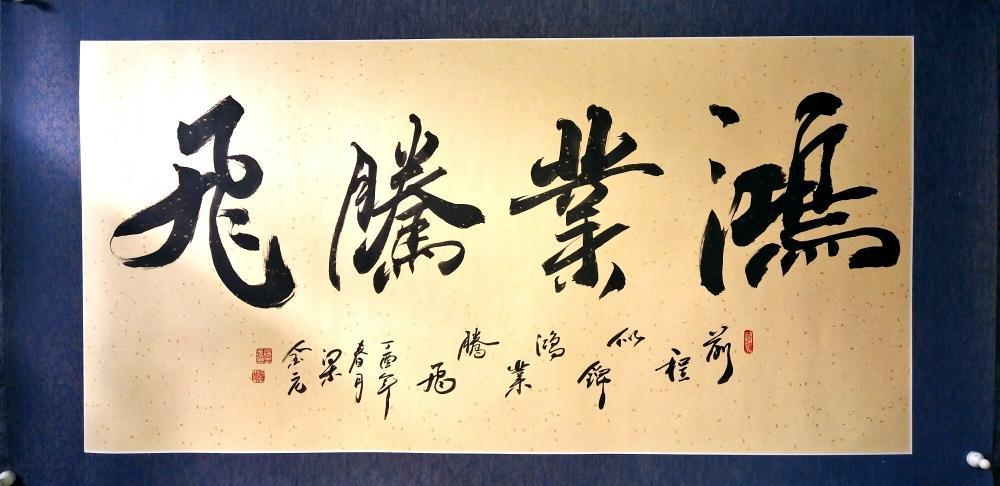 鴻業騰飛
前程似錦鴻業騰飛
丁酉年春月梁金元